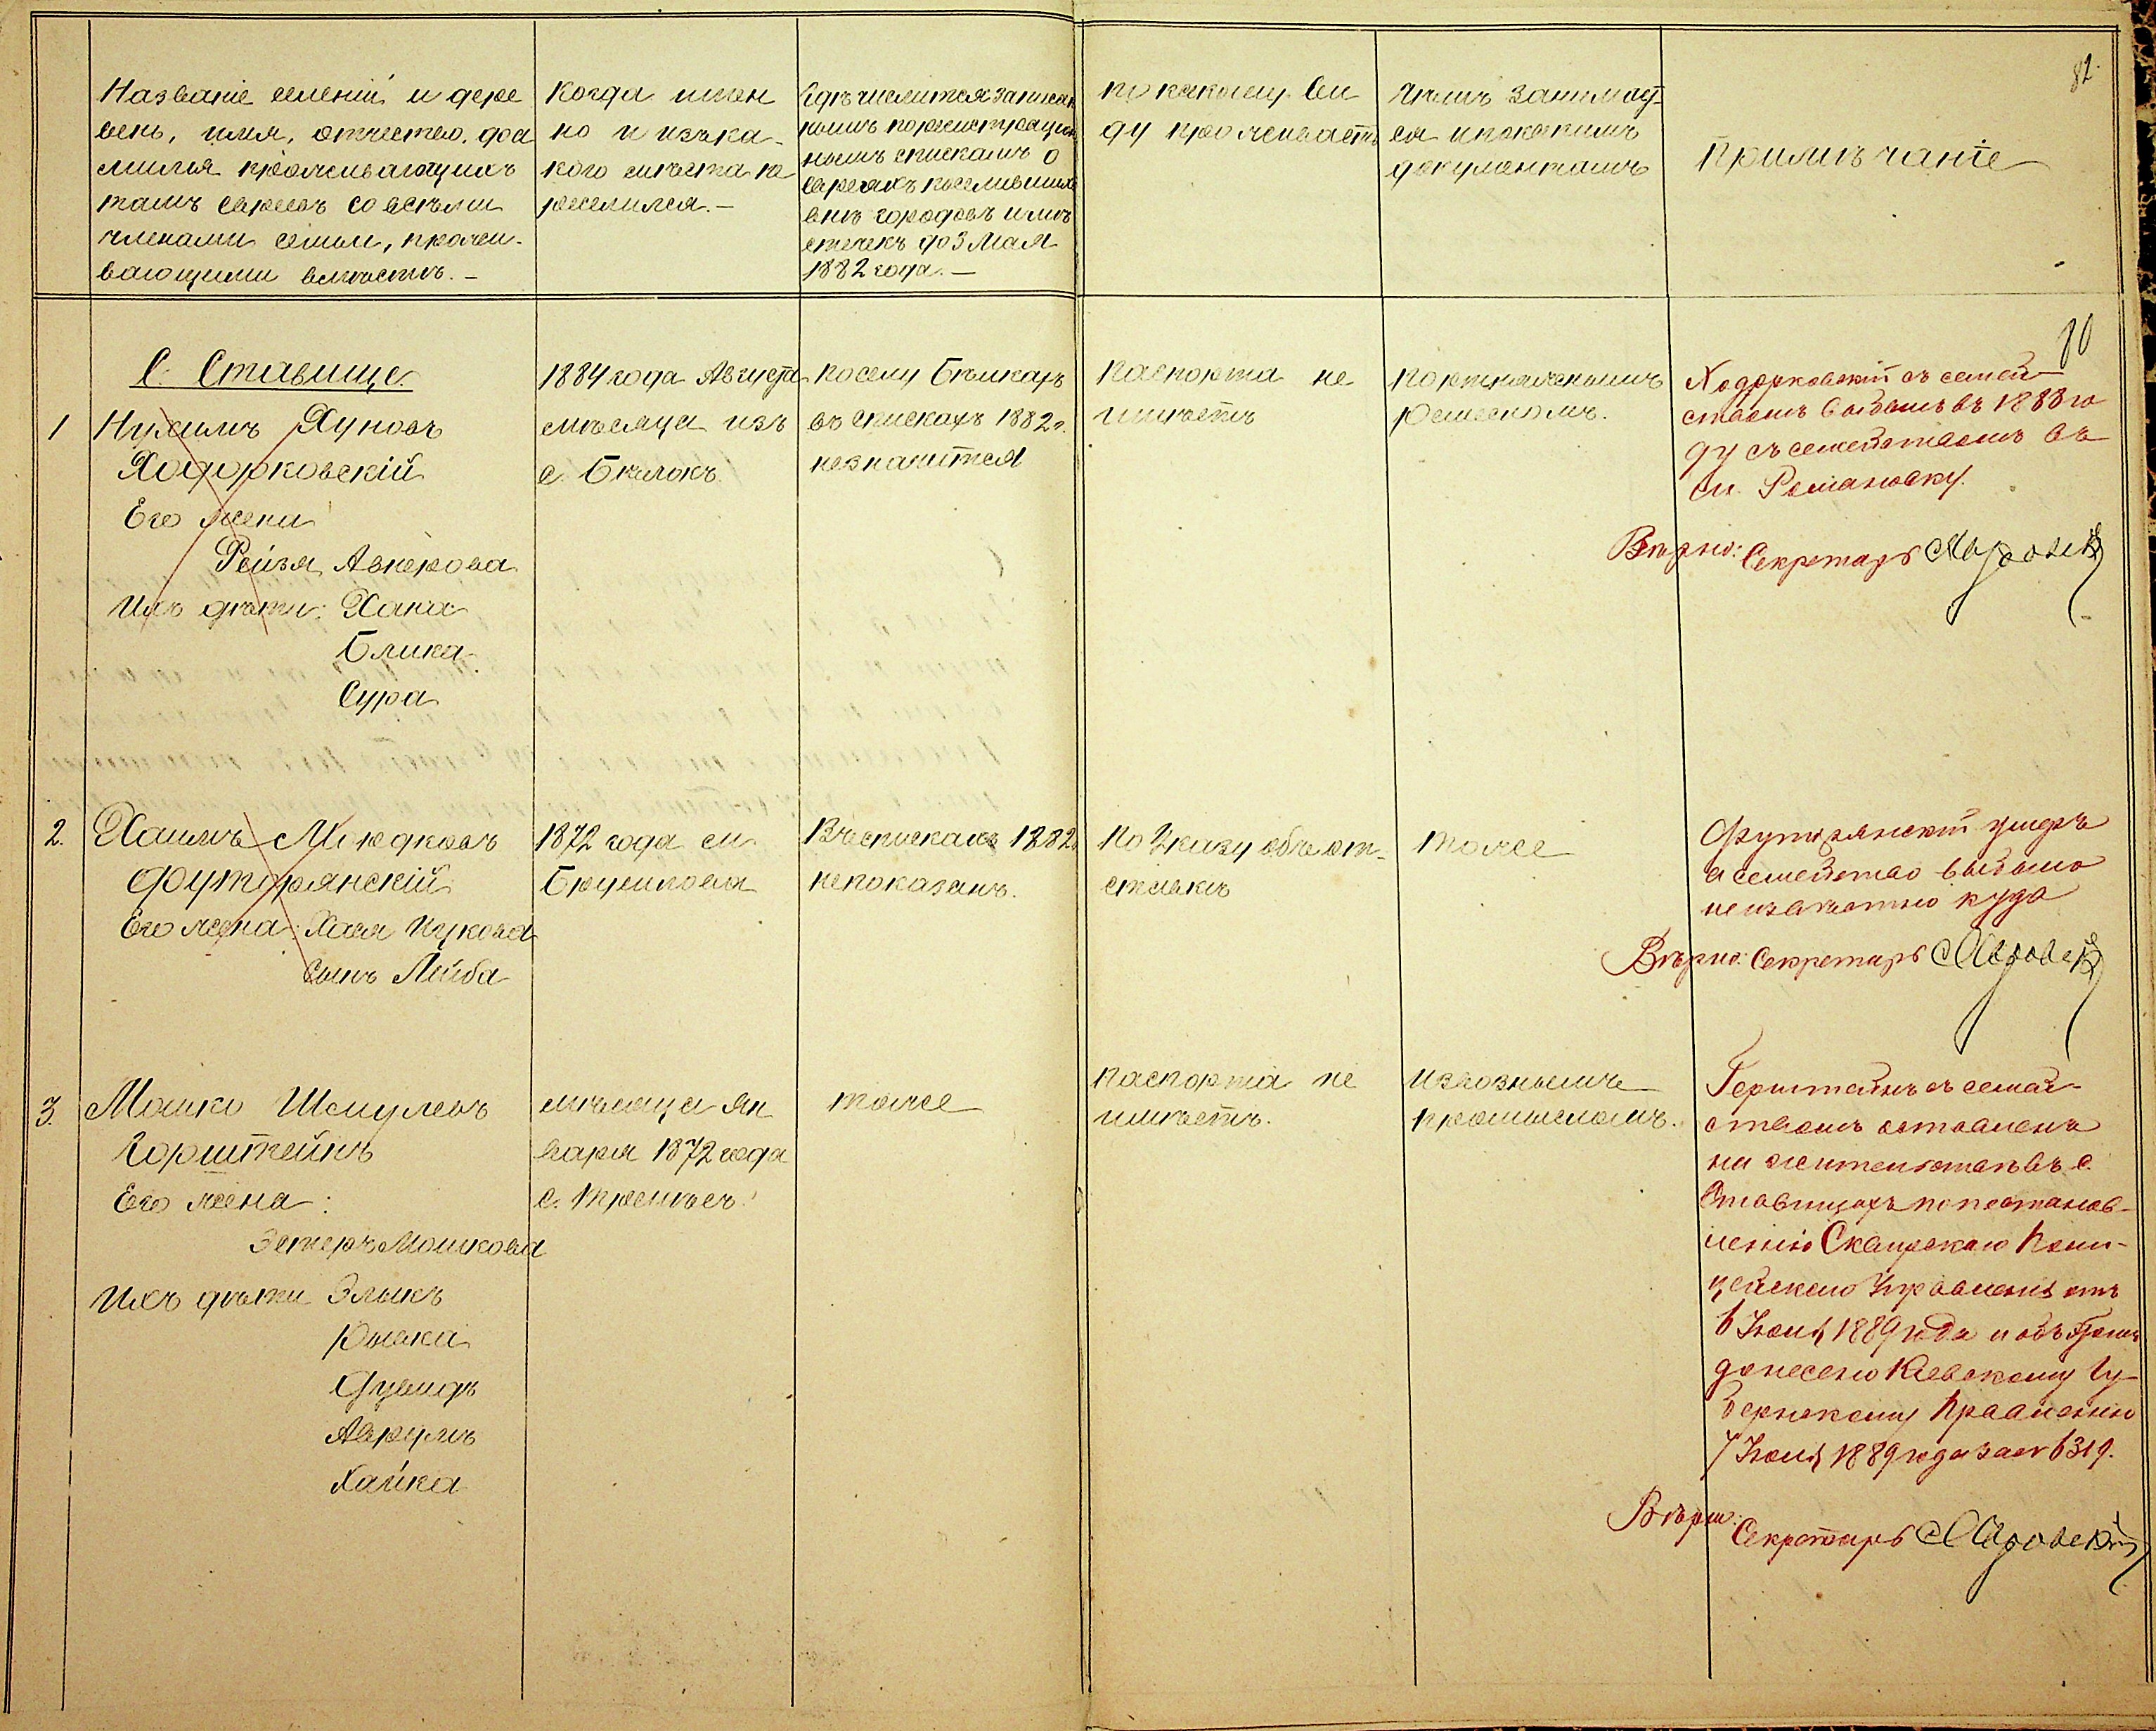 82.
Названіе селеній и дере
вень, имя, отчество, фа
милія проживающихъ
тамъ евреевъ со всѣми
членами семьи, прожи-
вающими вмѣстѣ. —
Когда имен
но и изъ ка-
кого мѣста по
селился. —
Гдѣ числится записан
нымъ по регистрацiон
нымъ спискамъ о
евреяхъ поселившихся
внѣ городовъ и мѣ
стечекъ до 3 Мая
1882 года. —
По какому ви
ду проживаетъ
Чѣмъ занимает-
ся и по какимъ
документамъ
Примѣчаніе
80
С. Ставище
1
Нухимъ Хуновъ
Ходорковскій
Его жена
Рейзя Авнерова
Ихъ дѣти: Хана
Блика
Сура
1884 года Августа
мѣсяца изъ
с. Бѣлокъ
по селу Бѣлкахъ
въ спискахъ 1882 г.
не значится
Паспорта не
имѣетъ
Портняжнымъ
ремесломъ.
Ходорковскій съ семей-
ствомъ выбылъ въ 1888 го
ду съ семействомъ въ
м. Романовку.
Вѣрно: Секретарь
2.
Хаимъ Мордковъ
Футорянскій
Его жена: Хая Ицкова
Сынъ Лейба
1872 года м.
Брусилова
Въ спискахъ 1882
не показанъ.
По Указу объ от-
ставкѣ
тоже
Футорянскій умеръ
а семейство выбыло
неизвѣстно куда
Вѣрно: Секретарь
3.
Мошко Шмулевъ
Горштейнъ
Его жена:
Эстеръ Мошкова
Ихъ дѣти Элыкъ
Рывка
Дувидъ
Аврумъ
Хайка
мѣсяца Ян
варя 1872 года
с.
тоже
Паспорта не
имѣетъ.
Извознымъ
промысломъ.
Герштейнъ съ семей-
ствомъ оставленъ
на жительствѣ въ с.
Ставищахъ по постанов-
ленію Сквирскаго Поли-
цейскаго Управленія отъ
6 Іюля 1889 года и объ этомъ
донесено Кіевскому Гу-
бернскому Правленію
7 Іюля 1889 года за № 6319.
Вѣрно:
Секретарь